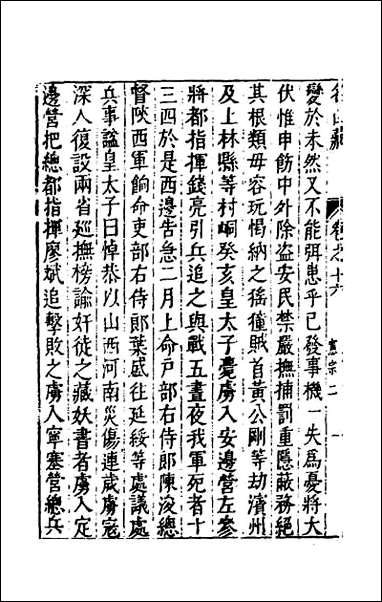 名山藏 卷之十六 憲宗二 一
變於未然又不能弭患乎已發事機一失爲憂將大
伏惟申飭中外除盜安民禁嚴撫捕罰重隱蔽務絕
其根類毋容玩愒納之猺獞賊首黃公剛等劫濱州
及上林縣等村峒癸亥皇太子薨虜入安邊營左參
將都指揮錢亮引兵追之與戰五晝夜我軍死者十
三四於是西邊告急二月上命戶部右侍郎陳浚總
督陝西軍餉命吏部右侍郎葉盛往延綏等處議處
兵事謚皇太子曰悼恭以山西河南災傷連歲虜寇
深入復設兩省巡撫榜諭奸徒之藏妖書者虜入定
邊營把總都指揮廖斌追擊敗之虜入寧塞營總兵